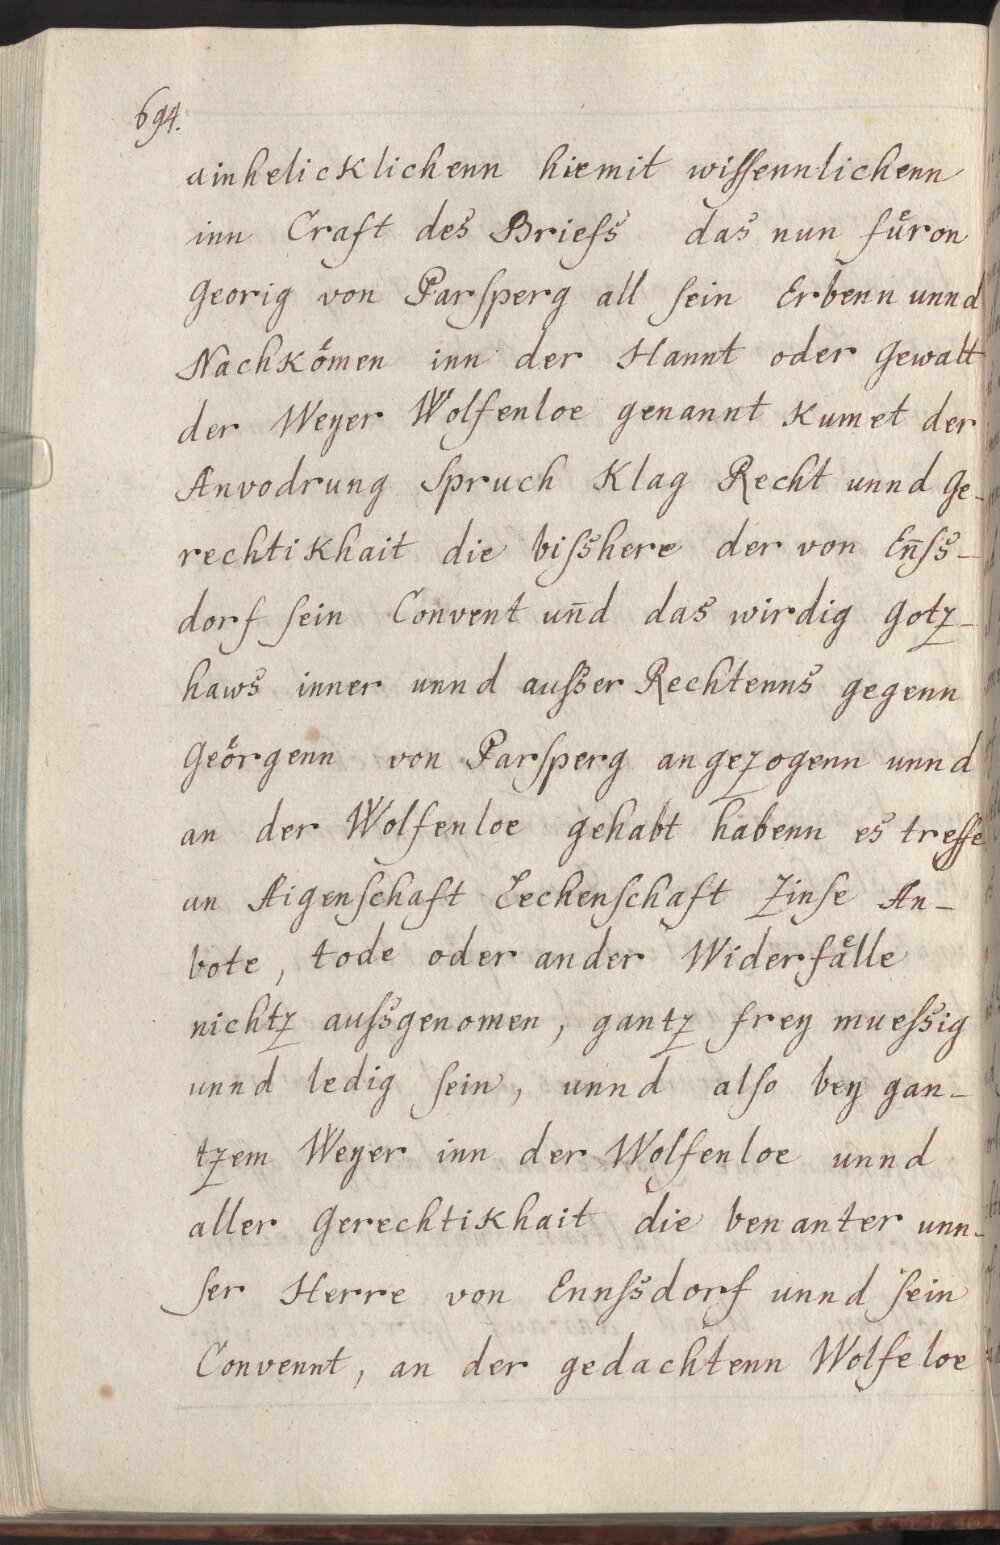 694.
ainhelicklichenn hiemit wissennlichenn
inn Craft des Briefs das nun fůron
Georig von Parsperg all sein Erbenn unnd
Nachkömen inn der Hannt oder Gewalt
der Weyer Wolfenloe genannt kumet der
Anvodrung Spruch Klag Recht unnd Ge-
rechtikhait die bisshere der von En̄ss-
dorf sein Convent un̄d das wirdig Gotz-
haws inner unnd ausser Rechtenns gegenn
Geörgenn von Parsperg angezogenn unnd
an der Wolfenloe gehabt habenn es treffe
an Aigenschaft Lechenschaft Zinse An-
bote, tode oder ander Widerfålle
nichtz aussgenomen, gantz frey muessig
unnd ledig sein, unnd also bey gan-
tzem Weyer inn der Wolfenloe unnd
aller Gerechtikhait die benanter unn-
ser Herre von Ennssdorf unnd sein
Convennt, an der gedachtenn Wolfeloe